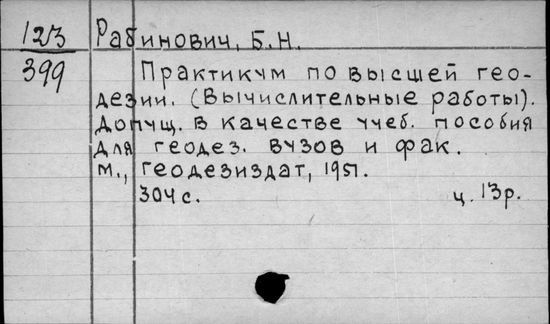 123
399
Рабинович, Б.Н.
Практикум по высшей гео-
дезии. (Вычислительные работы).
Допущ. в качестве учеб. пособия
для геодез. вузов и фак.
м., Геодезиздат, 1951.
304 с. ц. 13р.